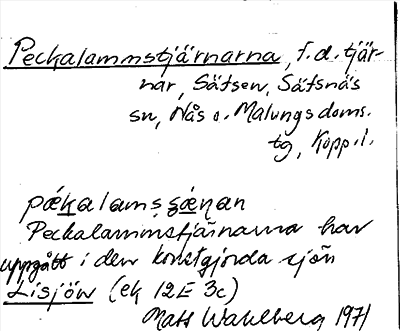 Peckalammstjärnarna, f.d. tjär-
nar, Sätsen, Särsnäs
sn, Nås o. Malungs doms.
tg, Kopp.l.
pǽkalamsʂǽɳan
Peckalammstjärnarna har
uppgått i den konstgjorda sjön
Lisjöw (ek 12E 3c)
Mats Wahlberg 1971